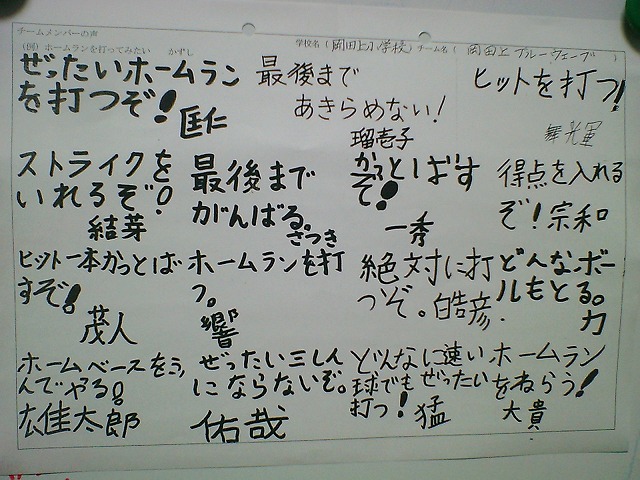 チームメンバーの声
(例) ホームランを打ってみたい かずし
学校名 ( 岡田上小学校 ) チーム名 ( 岡田上ブルーウェーブ )
ぜったいホームラン
を打つぞ!
匡仁
最後まで
あきらめない!
瑠壱子
ヒットを打つ!
舞光軍
ストライクを
いれるぞ!
結芽
最後まで
がんばる。
さつき
かっとばす
ぞ!
一秀
得点を入れる
ぞ!宗和
ヒット一本かっとば
すぞ!
茂人
ホームランを打
つ。
響
絶対に打
つぞ。皓彦
どんなボー
ルもとる。
力
ホームベースをふ
んでやる!
広佳太郎
ぜったい三しん
にならないぞ。
佑哉
どんなに速い
球でもぜったい
打つ!猛
ホームラン
をねらう!
大貴